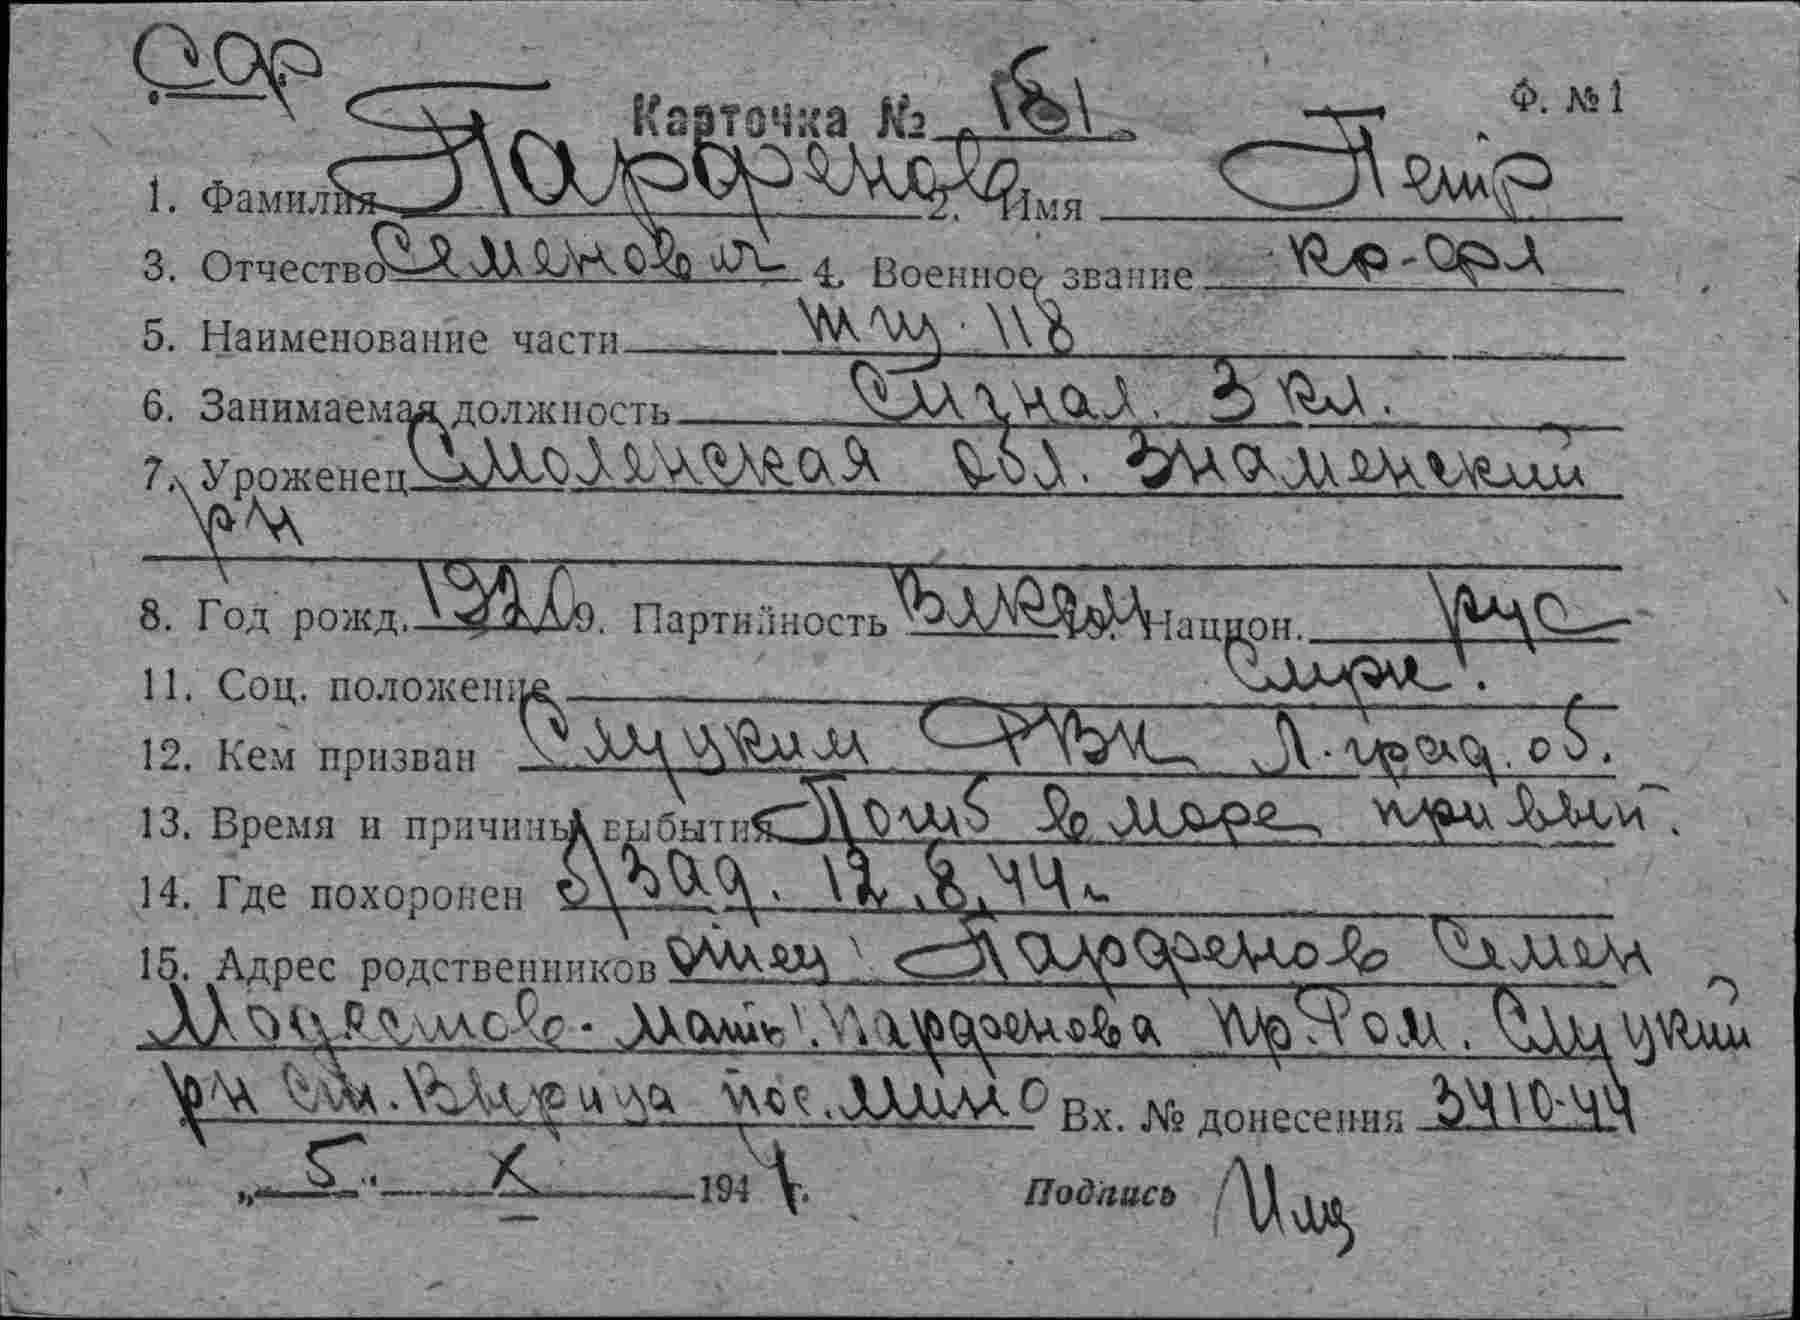 Карточка № 181 Ф. № 1
1. Фамилия Парфенов 2. Имя Петр
3. Отчество Семенович 4. Военное звание кр-
5. Наименование части тщ. 118
6. Занимаемая должность Сигнал. 3 кл.
7. Уроженец Смоленская обл. Знаменский
рн
8. Год рожд. 1920 9. Партийность ВЛКСМ 10. Национ. рус
11. Соц. положение Служ.
12. Кем призван Слуцким РВК Л. град. об.
13. Время и причины выбытия Погиб в море при вып.
14. Где похоронен б/зад. 12.8.44 г.
15. Адрес родственников отец Парфенов Семен
мать Парфенова Слуцкий
рн ст. Вырица пос. Вх. № донесения 3410-44
„ 5 “ X 1944 г. Подпись